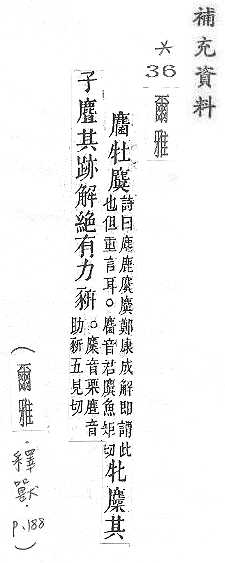 補充資料
*36 爾雅
麕牡麌
詩曰麀鹿麌麌鄭康成解即謂此
也但重言耳。麕音君麌魚矩切
牝麜其
子麆其跡解絕有力豣
。麜音栗麆音
助豣五見切
(爾雅·釋獸·p.188)